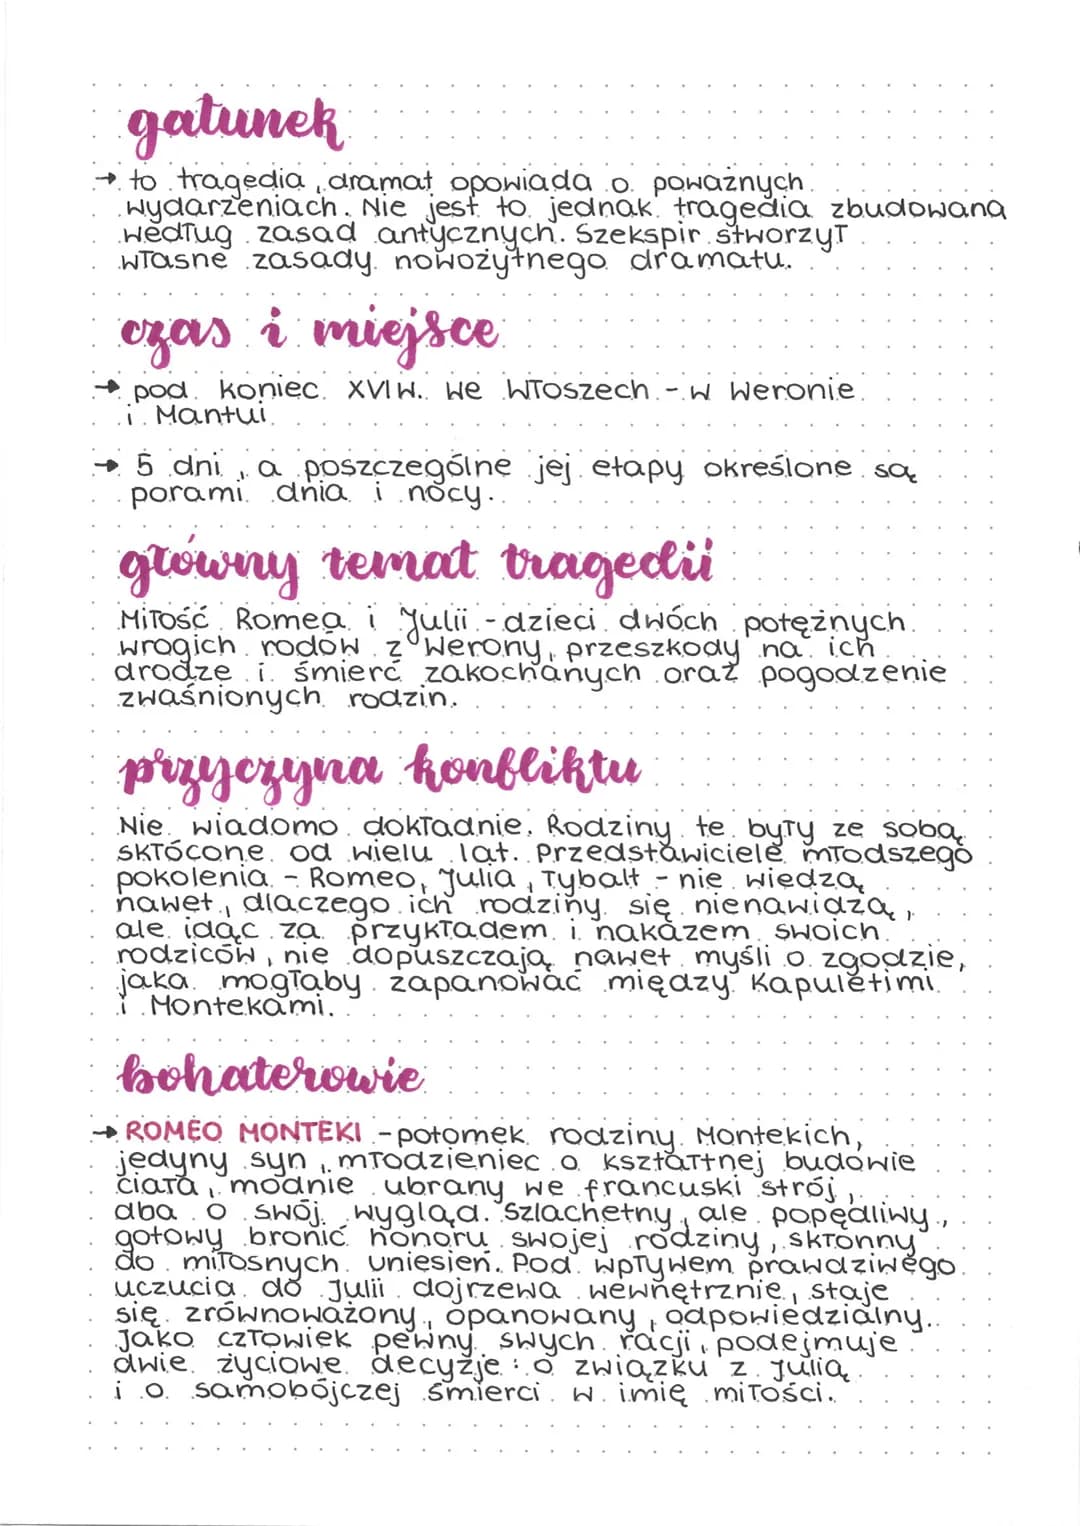 gatunek
→ to tragedia, dramat opowiada o poważnych
wydarzeniach. Nie jest to jednak tragedia zbudowana
według zasad antycznych. Szekspir stworzył
własne zasady nowożytnego dramatu.
czas i miejsce
→ pod koniec XVI w. we Włoszech - w Weronie
i Mantui
→ 5 dni, a poszczególne jej etapy określone są
porami dnia i nocy.
główny temat tragedii
Miłość Romea i Julii - dzieci dwóch potężnych
wrogich rodów z Werony, przeszkody na ich
drodze i śmierć zakochanych oraz pogodzenie
zwaśnionych rodzin.
przyczyna konfliktu
Nie wiadomo dokładnie. Rodziny te były ze sobą
skłócone od wielu lat. Przedstawiciele młodszego
pokolenia - Romeo, Julia, Tybalt - nie wiedzą
nawet, dlaczego ich rodziny się nienawidzą,
ale idąc za przykładem i nakazem swoich
rodziców, nie dopuszczają nawet myśli o zgodzie,
jaka mogłaby zapanować między Kapuletimi
i Montekami.
bohaterowie
→ ROMEO MONTEKI - potomek rodziny Montekich,
jedyny syn, młodzieniec o kształtnej budowie
ciała, modnie ubrany we francuski strój,
dba o swój wygląd. Szlachetny, ale popędliwy,
gotowy bronić honoru swojej rodziny, skłonny
do miłosnych uniesień. Pod wpływem prawdziwego
uczucia do Julii dojrzewa wewnętrznie, staje
się zrównoważony, opanowany, odpowiedzialny.
Jako człowiek pewny swych racji, podejmuje
dwie życiowe decyzje: o związku z Julią
i o samobójczej śmierci w imię miłości.